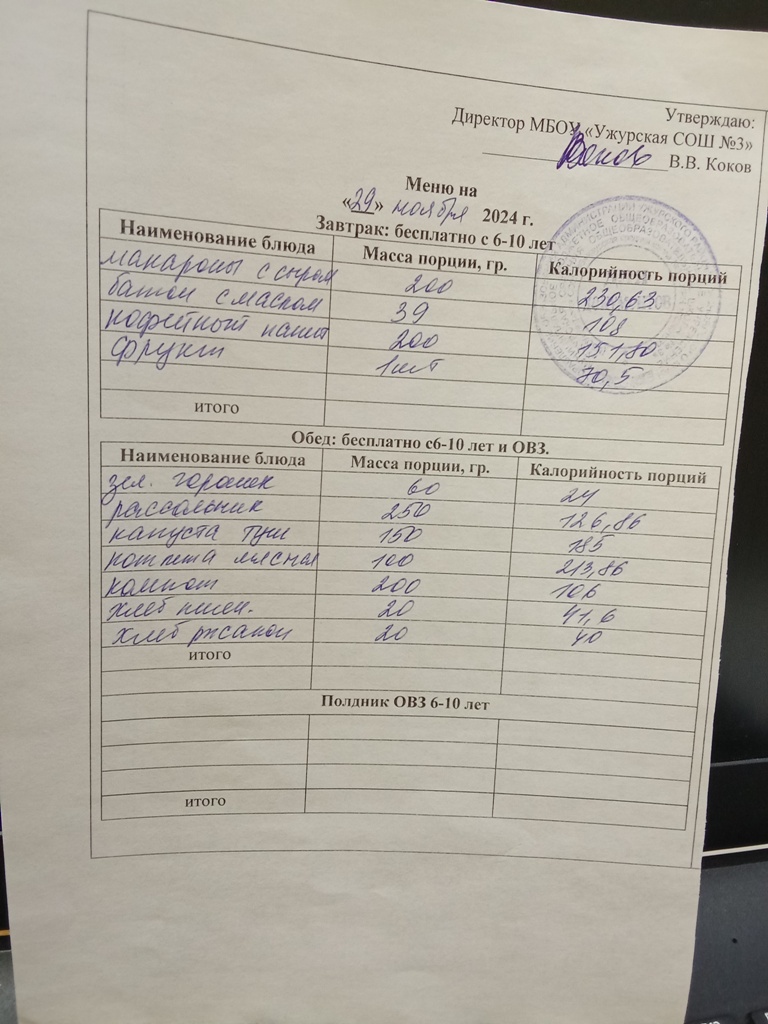 Утверждаю:
Директор МБОУ «Ужурская СОШ №3»
В.В. Коков
Меню на
«29» ноября 2024 г.
Завтрак: бесплатно с 6-10 лет
Наименование блюда Масса порции, гр. Калорийность порций
макароны с сыром 200 230,63
батон с маслом 39 108
кофейный напит 200 151,80
фрукт 1шт 70,5
итого
Обед: бесплатно с6-10 лет и ОВЗ.
Наименование блюда Масса порции, гр. Калорийность порций
зел. горошек 60 24
рассольник 250 126,86
капуста туш 150 185
котлета мясная 100 213,86
компот 200 106
хлеб пшен. 20 41,6
хлеб ржаной 20 40
итого
Полдник ОВЗ 6-10 лет
итого